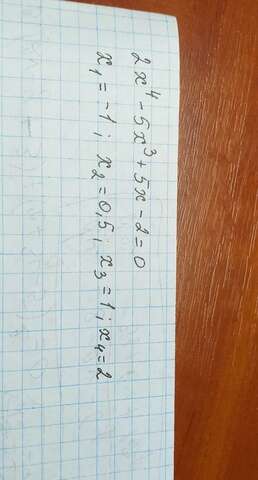 2x⁴ - 5x³ + 5x - 2 = 0
x₁ = -1 ; x₂ = 0,5 ; x₃ = 1 ; x₄ = 2